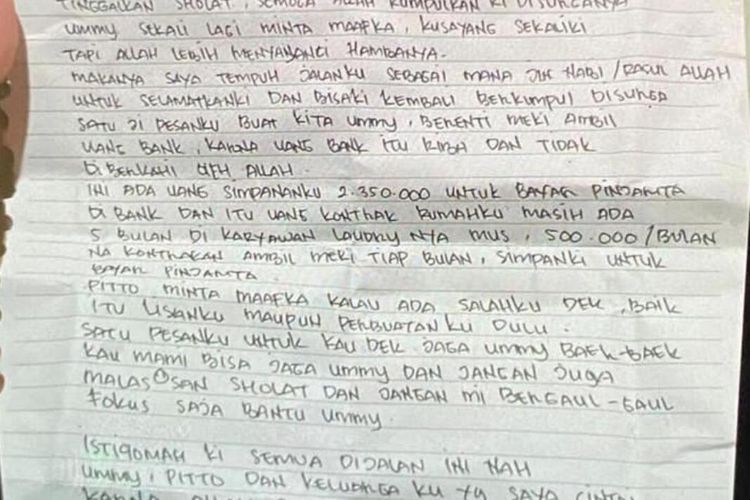 TINGGALKAN SHOLAT, SEMOGA ALLAH KUMPULKAN KI DISURGANYA
UMMY SEKALI LAGI MINTA MAAFKA, KUSAYANG SEKALIKI
TAPI ALLAH LEBIH MENYAYANGI HAMBANYA.
MAKANYA SAYA TEMPUH JALANKU SEBAGAI MANA JLN NABI/RASUL ALLAH
UNTUK SELAMATKANKI DAN BISAKI KEMBALI BERKUMPUL DISURGA
SATU JI PESANKU BUAT KITA UMMY, BERENTI MEKI AMBIL
UANG BANK, KARNA UANG BANK ITU RIBA DAN TIDAK
DI BERKAHI OLEH ALLAH.
INI ADA UANG SIMPANANKU 2.350.000 UNTUK BAYAR PINJAMTA
DI BANK DAN ITU UANG KONTRAK RUMAHKU MASIH ADA
5 BULAN DI KARYAWAN LAUNDRY NYA MUS, 500.000/BULAN
NA KONTRAKAN AMBIL MEKI TIAP BULAN, SIMPANKI UNTUK
BAYAR PINJAMTA
PITTO MINTA MAAFKA KALAU ADA SALAHKU DEK, BAIK
ITU LISANKU MAUPUN PERBUATAN KU DULU.
SATU PESANKU UNTUK KAU DEK JAGA UMMY BAEK-BAEK
KAU MAMI BISA JAGA UMMY DAN JANGAN JUGA
MALAS°SAN SHOLAT DAN JANGAN MI BERGAUL-GAUL
FOKUS SAJA BANTU UMMY.
ISTIQOMAH KI SEMUA DIJALAN INI NAH
UMMY, PITTO DAN KELUARGA KU YG SAYA CINTAI
KARNA